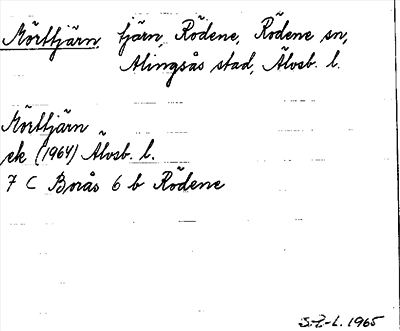 Mörttjärn tjärn, Rödene, Rödene sn,
Alingsås stad, Älvsb. l.
Mörttjärn
ek (1964) Älvsb. l.
7 C Borås 6 b Rödene
S.E-L. 1965